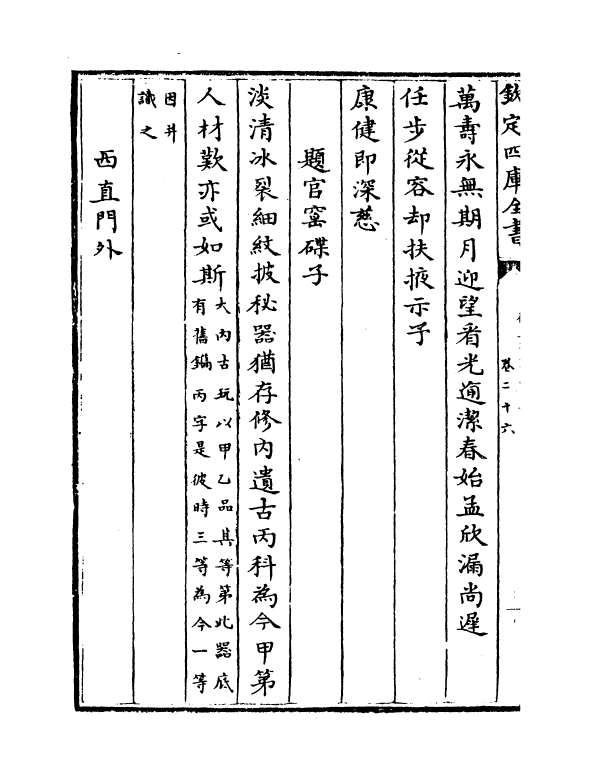 欽定四庫全書
卷二十六
萬壽永無期月迎望看光逾潔春始孟欣漏尚遲
任步從容却扶掖示予
康健即深慈
題官窰碟子
淡清冰裂細紋披秘器猶存修内遺古丙科為今甲第
人材歎亦或如斯
大内古玩以甲乙品其等第此器底
有舊鐫丙字是彼時三等為今一等
因并
識之
西直門外